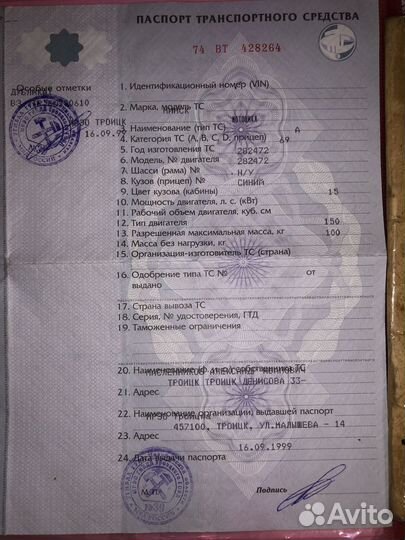 ПАСПОРТ ТРАНСПОРТНОГО СРЕДСТВА
74 ВТ 428264
Особые отметки
ДУБЛИКАТ
ТРОИЦК
16.09.99
1. Идентификационный номер (VIN)
2. Марка, модель ТС
МИНСК
МОТОЦИКЛ
3. Наименование (тип ТС)
А
4. Категория ТС (А, В, С, D, прицеп)
69
5. Год изготовления ТС
282472
6. Модель, № двигателя
282472
7. Шасси (рама) №
Н/У
8. Кузов (прицеп) №
СИНИЙ
9. Цвет кузова (кабины)
15
10. Мощность двигателя, л. с. (кВт)
11. Рабочий объем двигателя, куб. см
12. Тип двигателя
150
13. Разрешенная максимальная масса, кг
100
14. Масса без нагрузки, кг
15. Организация-изготовитель ТС (страна)
16. Одобрение типа ТС № от
выдано
17. Страна вывоза ТС
18. Серия, № удостоверения, ГТД
19. Таможенные ограничения
20. Наименование (ф. и. о.) собственника ТС
МАСЛЕННИКОВ АЛЕКСАНДР
ТРОИЦК ТРОИЦК ДЕНИСОВА 33-
21. Адрес
22. Наименование организации, выдавшей паспорт
457100, ТРОИЦК, УЛ.МАЛЫШЕВА - 14
23. Адрес
16.09.1999
24. Дата выдачи паспорта
М.П.
Подпись
Avito